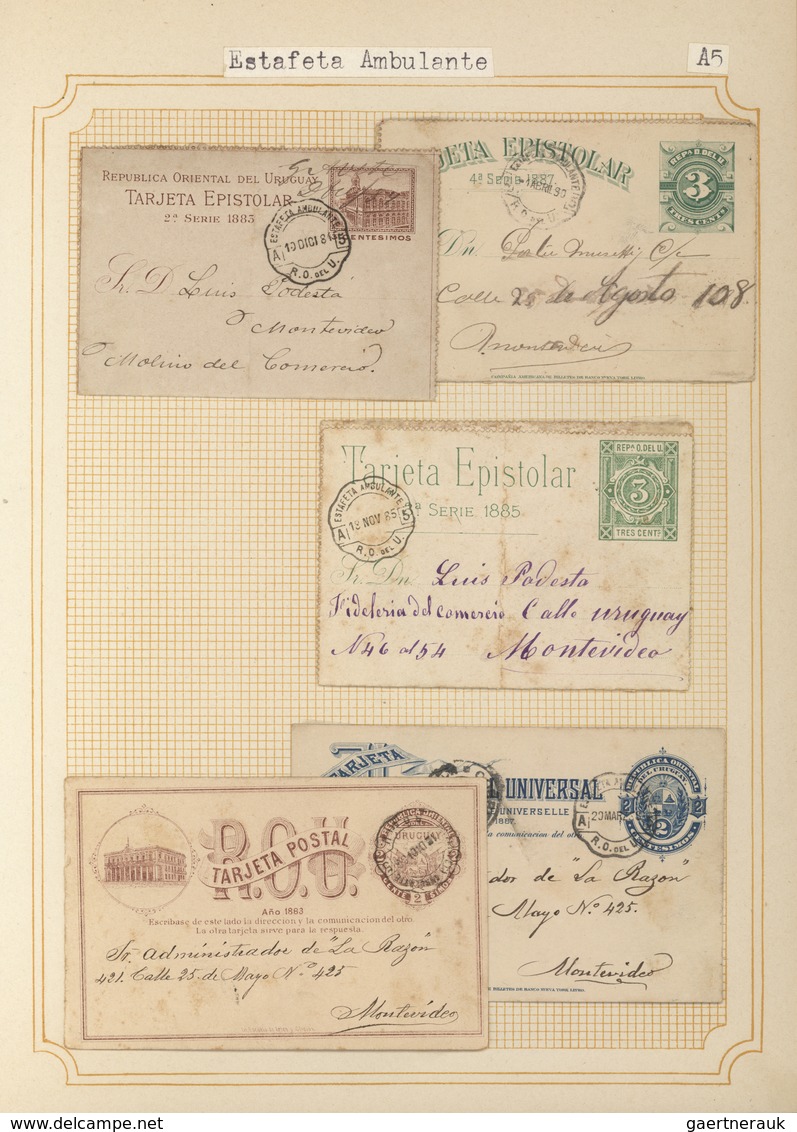 Estafeta Ambulante
A5
REPUBLICA ORIENTAL DEL URUGUAY
TARJETA EPISTOLAR
2ª SERIE 1883
CENTESIMOS
ESTAFETA AMBULANTE
A 5
R.O. DEL U.
Sr. D. Luis Podestá
Montevideo
Molino del Comercio.
JETA EPISTOLAR
4ª Serie 1887.
REPª O. DEL U.
3
TRES CENTS
R.O. DEL U.
Dn.
Calle 25 de Agosto 108
Montevideo
COMPAÑIA AMERICANA DE BILLETES DE BANCO NUEVA YORK LINEO.
Tarjeta Epistolar
ª SERIE 1885
REPª O. DEL U.
3
TRES CENTS
ESTAFETA AMBULANTE
A 18 NOV 85 5
R.O. DEL U.
Sr. Dn. Luis Podesta
Fideleria del comercio Calle uruguay
N 46 al 54 Montevideo
TARJETA
L UNIVERSAL
UNIVERSELLE
1887.
REPUBLICA ORIENTAL
DEL URUGUAY
2 2
2
CENTESIMOS
A 20 MAR
R.O. DEL U.
comunicacion del otro.
dor de "La Razon"
Mayo Nº 425.
Montevideo
BILLETES DE BANCO NUEVA YORK LINEO.
R.O.U.
TARJETA POSTAL
Año 1883
Escribase de este lado la direccion y la comunicacion del otro.
La otra tarjeta sirve para la respuesta.
URUGUAY
2
Sr. administrador de "La Razón"
421. Calle 25 de Mayo Nº 425
Montevídeo
delcampe.net
gaertnerauk